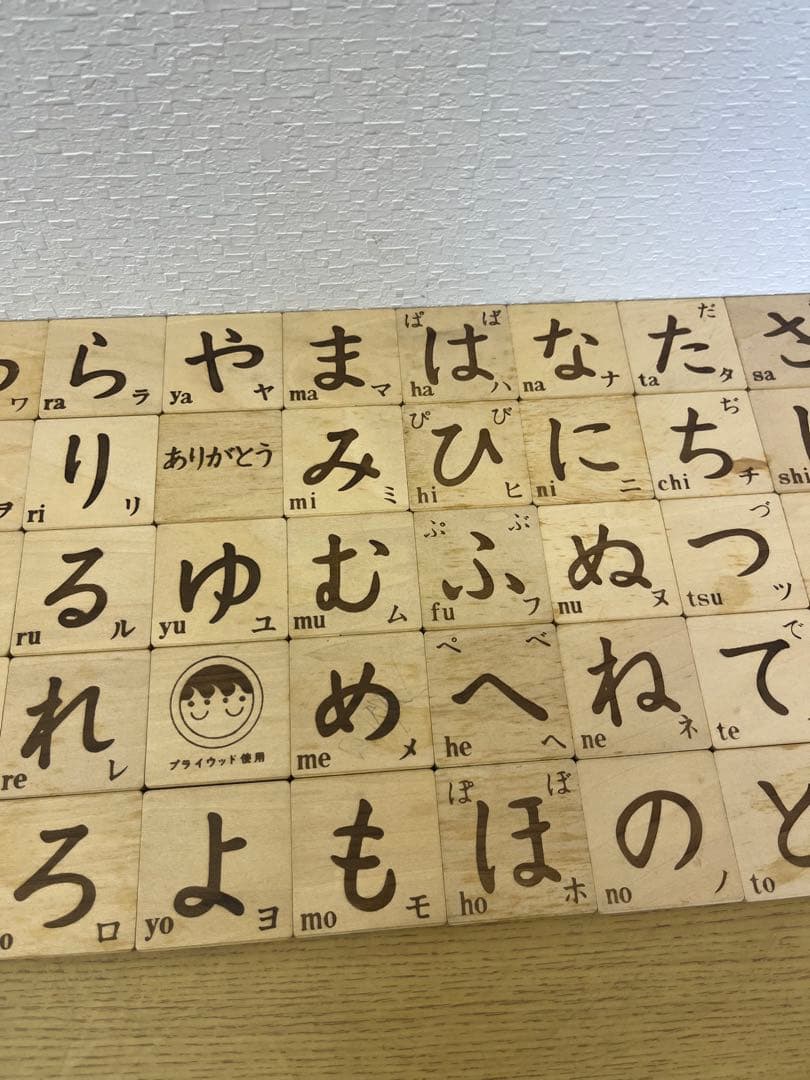 ワ
ら ra ラ
や ya ヤ
ま ma マ
ぱ ば は ha ハ
な na ナ
だ た ta タ
さ sa
ヲ
り ri リ
ありがとう
み mi ミ
ぴ び ひ hi ヒ
に ni ニ
ぢ ち chi チ
し shi
る ru ル
ゆ yu ユ
む mu ム
ぷ ぶ ふ fu フ
ぬ nu ヌ
づ つ tsu ツ
れ re レ
プライウッド使用
め me メ
ぺ べ へ he ヘ
ね ne ネ
で て te
ろ o ロ
よ yo ヨ
も mo モ
ぽ ぼ ほ ho ホ
の no ノ
と to